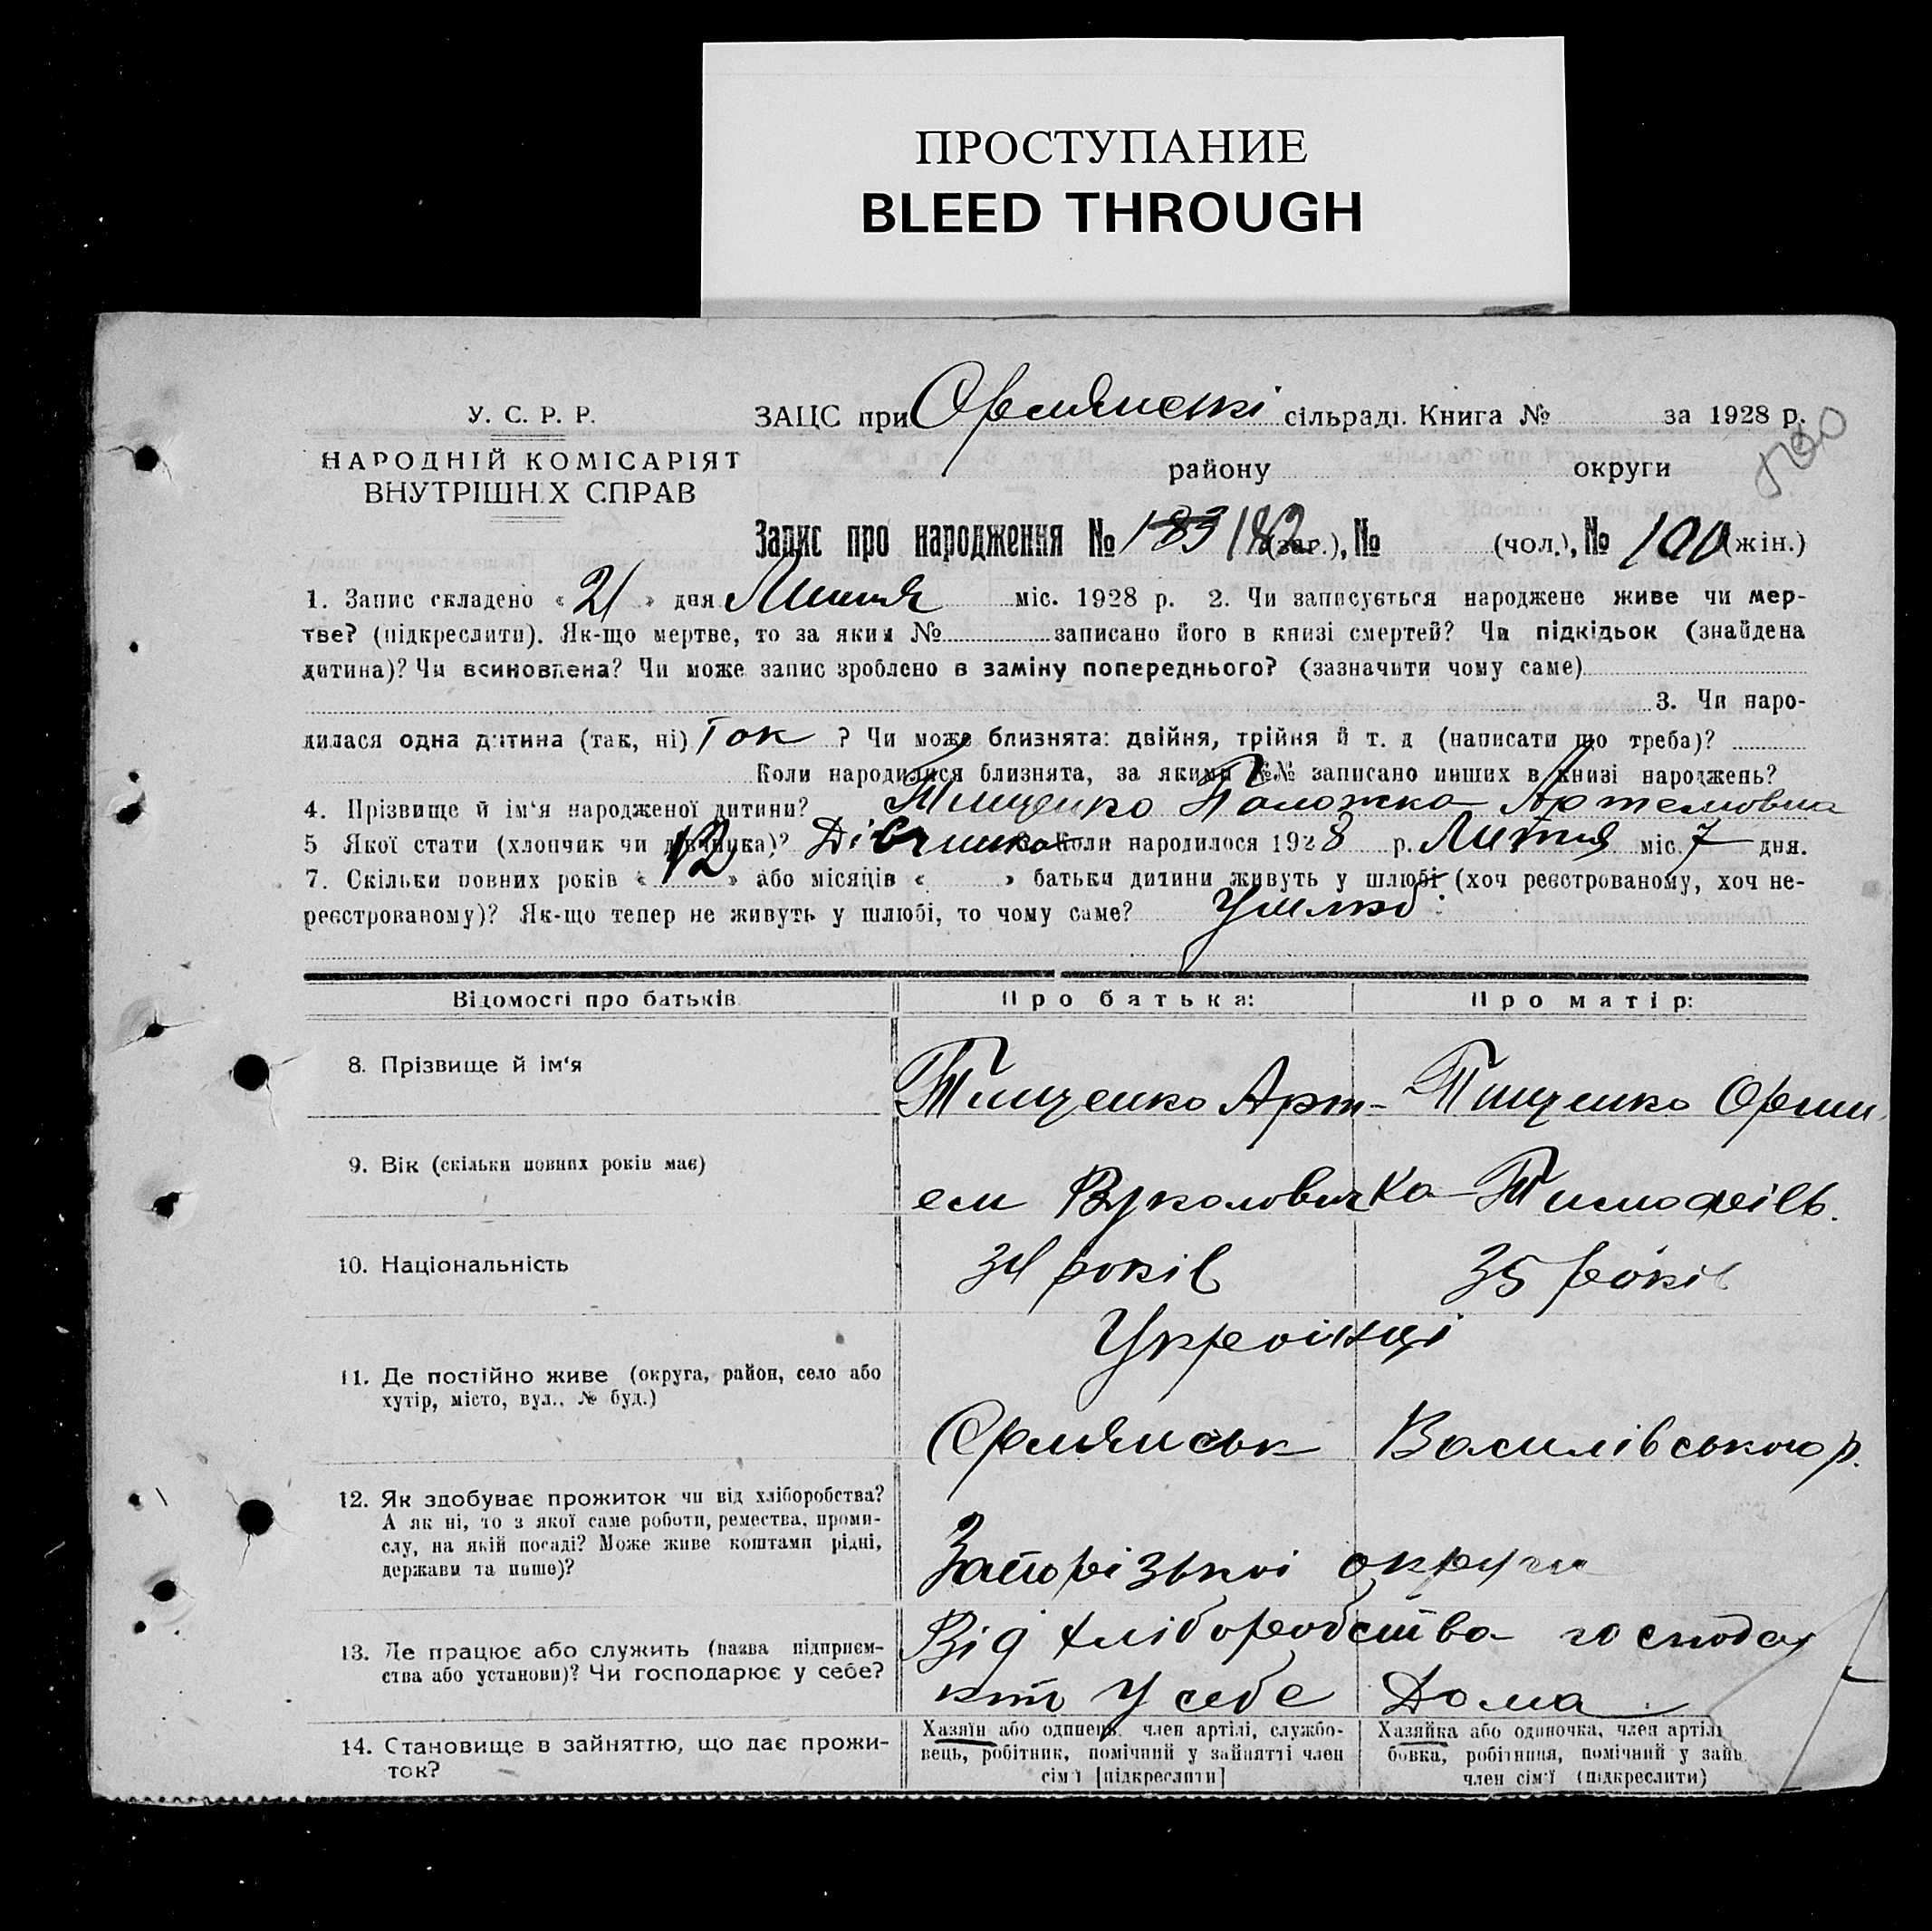 ПРОСТУПАНИЕ
BLEED THROUGH
У. С. Р. Р.
НАРОДНІЙ КОМІСАРІЯТ
ВНУТРІШН.Х СПРАВ
ЗАЦС при сільраді. Книга № за 1928 р.
району округи
Запис про народження № 183 182 (заг.), № (чол.), № 100 (жін.)
1. Запис складено « 21 » дня Липня міс. 1928 р. 2. Чи записується народжене живе чи мер-
тве? (підкреслити). Як-що мертве, то за яким № записано його в книзі смертей? Чи підкідьок (знайдена
дитина)? Чи всиновлена? Чи може запис зроблено в заміну попереднього? (зазначити чому саме)
3. Чи наро-
дилася одна дитина (так, ні) Так ? Чи може близнята: двійня, трійня й т. д (написати що треба)?
Коли народилися близнята, за якими №№ записано инших в книзі народжень?
4. Прізвище й ім'я народженої дитини? Тищенко Палажка Артемовна
5 Якої стати (хлопчик чи дівчинка)? Дівчинка Коли народилося 1928 р. Липня міс. 7 дня.
7. Скільки повних років « 12 » або місяців « » батьки дитини живуть у шлюбі (хоч реєстрованому, хоч не-
реєстрованому)? Як-що тепер не живуть у шлюбі, то чому саме? У шлюб
Відомості про батьків
Про батька:
Про матір:
8. Прізвище й ім'я
Тищенко Арт-
Тищенко Орши
9. Вік (скільки повних років має)
ем Вуколович
ка Тимофеівь.
10. Національність
34 років
35 років
Українці
11. Де постійно живе (округа, район, село або
хутір, місто, вул., № буд.)
Василівського р.
12. Як здобуває прожиток чи від хліборобства?
А як ні, то з якої саме роботи, ремества, проми-
слу, на якій посаді? Може живе коштами рідні,
держави та инше)?
Запорізької округи
13. Де працює або служить (назва підприєм-
ства або установи)? Чи господарює у себе?
Від хліборобства господар
у себе
Дома
14. Становище в зайняттю, що дає прожи-
ток?
Хазяїн або одинець, член артілі, службо-
вець, робітник, помічний у зайнятті член
сім'ї [підкреслити]
Хазяйка або одиночка, член артілі
бовка, робітниця, помічний у зайн
член сім'ї (підкреслити)